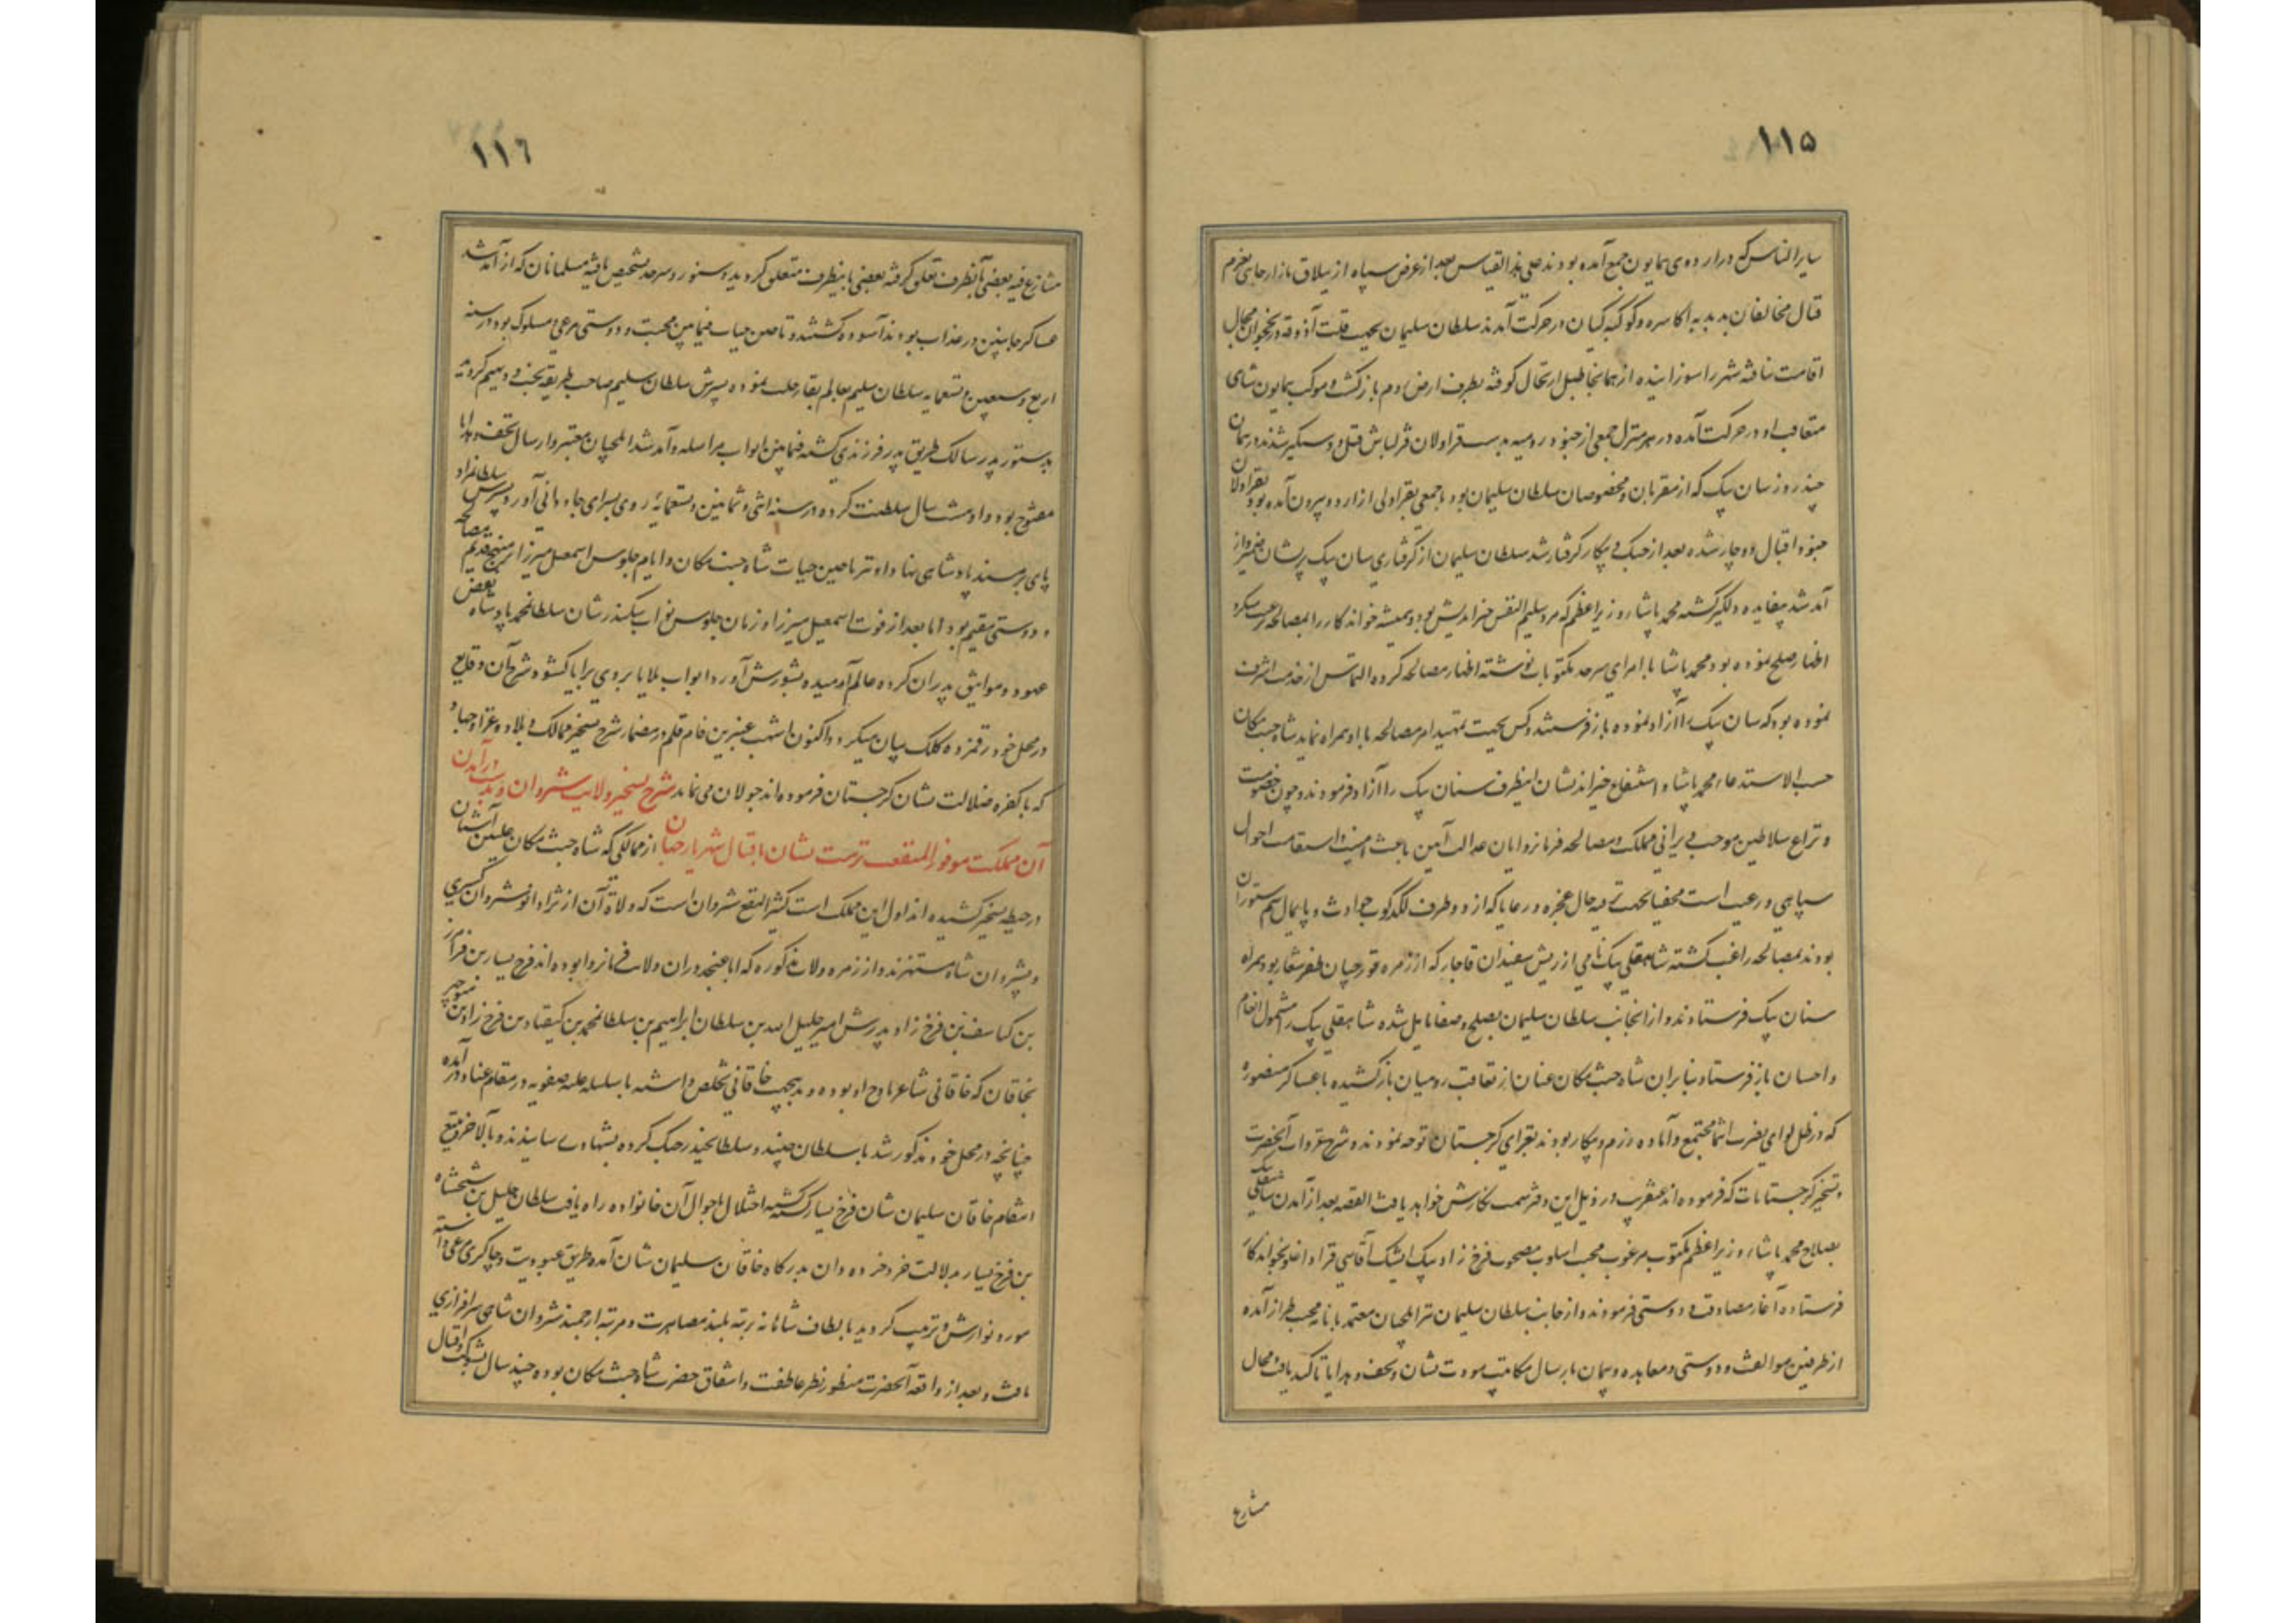 ۱۱۵
سایر الناس که در اردوی همایون جمع آمده بودند علی هذا القیاس بعد از عرض سپاه از ییلاق نازار جابی بعزم
قتال مخالفان بدبدبه اکاسره و کوکبه کیان در حرکت آمدند سلطان سلیمان بجهت قلت آذوقه در نخجوان مجال
اقامت نیافته شهر را سوزانیده از همانجا طبل ارتحال کوفته بطرف ارض روم بازگشت و موکب همایون شاهی
متعاقب او در حرکت آمده در هر منزل جمعی از جنود رومیه بدست قراولان قزلباش قتیل و دستگیر شدند در همان
چند روز سنان بیک که از مقربان و مخصوصان سلطان سلیمان بود با جمعی بقراولی از اردو بیرون آمده بود بقراولان
جنود اقبال دوچار شده بعد از جنگ و پیکار گرفتار شد سلطان سلیمان از گرفتاری سنان بیک پریشان ضمیر و از
آمد شد بیفایده دلگیر گشته محمد پاشاء وزیر اعظم که مرد سلیم النفس خیراندیش بود و همیشه خواندکار را بمصالحه ترغیب میکرد
اظهار صلح نموده بود محمد پاشا با امرای سرحد مکتوبات نوشته اظهار مصالحه کرده التماس از خدمت اشرف
نموده بود که سنان بیک را آزاد نموده باز فرستند و کس بجهت تمهید امر مصالحه با او همراه نمایند شاه جنت مکان
حسب الاستدعاء محمد پاشا و استشفاع خیراندیشان اینطرف سنان بیک را آزاد فرمودند و چون خصومت
و نزاع سلاطین موجب ویرانی مملکت و مصالحه فرمانروایان عدالت آیین باعث امنیت و استقامت احوال
سپاهی و رعیت است بجهت ترفیه حال عجزه و رعایا که از دو طرف لگدکوب حوادث و پایمال سم ستوران
بودند بمصالحه راغب گشته شاهقلی بیک نامی از ریش سفیدان قاجار که از زمره قورچیان ظفر شعار بود همراه
سنان بیک فرستادند و از انجانب سلطان سلیمان بصلح و صفا مایل شده شاهقلی بیک را مشمول انعام
و احسان باز فرستاد بنابران شاه جنت مکان عنان از تعاقب رومیان بازکشیده با عساکر منصوره
که در ظل لوای نصرت انتما مجتمع و آماده رزم و پیکار بودند بغزای گرجستان توجه نمودند و شرح غزوات آنحضرت
و تسخیر گرجستانات که فرموده اند عنقریب در ذیل این دفتر سمت نگارش خواهد یافت القصه بعد از آمدن شاهقلی بیک
بصلاح محمد پاشاء وزیر اعظم مکتوب مرغوب محبت اسلوب مصحوب فرخ زاد بیک ایشیک آقاسی قراداغلو بخواندکار
فرستاده آغاز مصادقت و دوستی فرمودند و از جانب سلطان سلیمان نیز ایلچیان معتمد با نامه محبت طراز آمده
از طرفین موالفت و دوستی و معاهده و پیمان بارسال مکاتیب مودت نشان و تحف و هدایا تاکید یافت محال
متنازع
۱۱٦
متنازع فیه بعضی بآنطرف تعلق گرفته بعضی باینطرف متعلق گردید و سنور و سرحد مشخص یافته مسلمانان که از آمد شد
عساکر جانبین در عذاب بودند آسوده گشتند و تا حین حیات فیمابین محبت و دوستی مرعی و مسلوک بود در سنه
اربع و سبعین و تسعمایه سلطان سلیم بعالم بقا رحلت نموده پسرش سلطان سلیم صاحب طریقه تخت و دیهیم گردید
بدستور پدر سالک طریق پدر فرزندی گشته فیمابین ابواب مراسله و آمد شد ایلچیان معتبر و ارسال تحف و هدایا
مفتوح بود و او هشت سال سلطنت کرده در سنه اثنی و ثمانین و تسعمایه روی بسرای جاودانی آورد و پسرش سلطانمراد
پای بر مسند پادشاهی نهاد او نیز تا حین حیات شاه جنت مکان و ایام جلوس اسمعیل میرزا بر منهج قدیم بمصالحه
و دوستی مقیم بود اما بعد از فوت اسمعیل میرزا و زمان جلوس نواب سکندر شان سلطانمحمد پادشاه نقض
عهود و مواثیق پدران کرده عالم آرمیده بشورش آورد و ابواب بلایا بروی برایا گشود و شرح آن وقایع
در محل خود رقمزده کلک بیان میگردد اکنون اشهب عنبرین خام قلم در مضمار شرح تسخیر ممالک و بلاد و غزا و جهاد
که با کفره ضلالت نشان گرجستان فرموده اند جولان می نماید شرح تسخیر ولایت شروان و بدست درآمدن
آن مملکت موفور المنفعت نزهت نشان باقبال شهریار جهان از ممالکی که شاه جنت مکان علیین آشیان
در حیطه تسخیر کشیده اند اول این مملکت کثیر النفع شروان است که ولاة آن از نژاد انوشروان کسری
و بشروان شاه مشتهرند و از زمره ولات مذکوره که ابا عنجد در ان ولایت فرمانروا بوده اند فرخ یسار بن فرامرز
بن کساسف بن فرخ زاد و پدرش امیر جلیل الله بن سلطان ابراهیم بن سلطانمحمد بن کیقباد بن فرخ زاد بن منوچهر
بخاقان که خاقانی شاعر مداح او بوده و بدینجهت خاقانی تخلص داشته با سلسله علیه صفویه در مقام عناد درآمده
چنانچه در محل خود مذکور شد با سلطان جنید و سلطانحیدر جنگ کرده بشهادت رسانیدند و بالاخره بتیغ
انتقام خاقان سلیمان شان فرخ یسار کشته گشته اختلال باحوال آن خانواده راه یافت سلطان خلیل بن شیخشاه
بن فرخ یسار بدلالت خرد خرده دان بدرگاه خاقان سلیمان شان آمده طریق عبودیت و چاکری مرعی داشته
مورد نوازش و تربیت گردید بالطاف شاهانه برتبه بلند مصاهرت و مرتبه ارجمند شروان شاهی سرافرازی
یافت و بعد از واقعه آنحضرت منظور نظر عاطفت و اشفاق حضرت شاه جنت مکان بوده چند سال بشوکت و اقبال